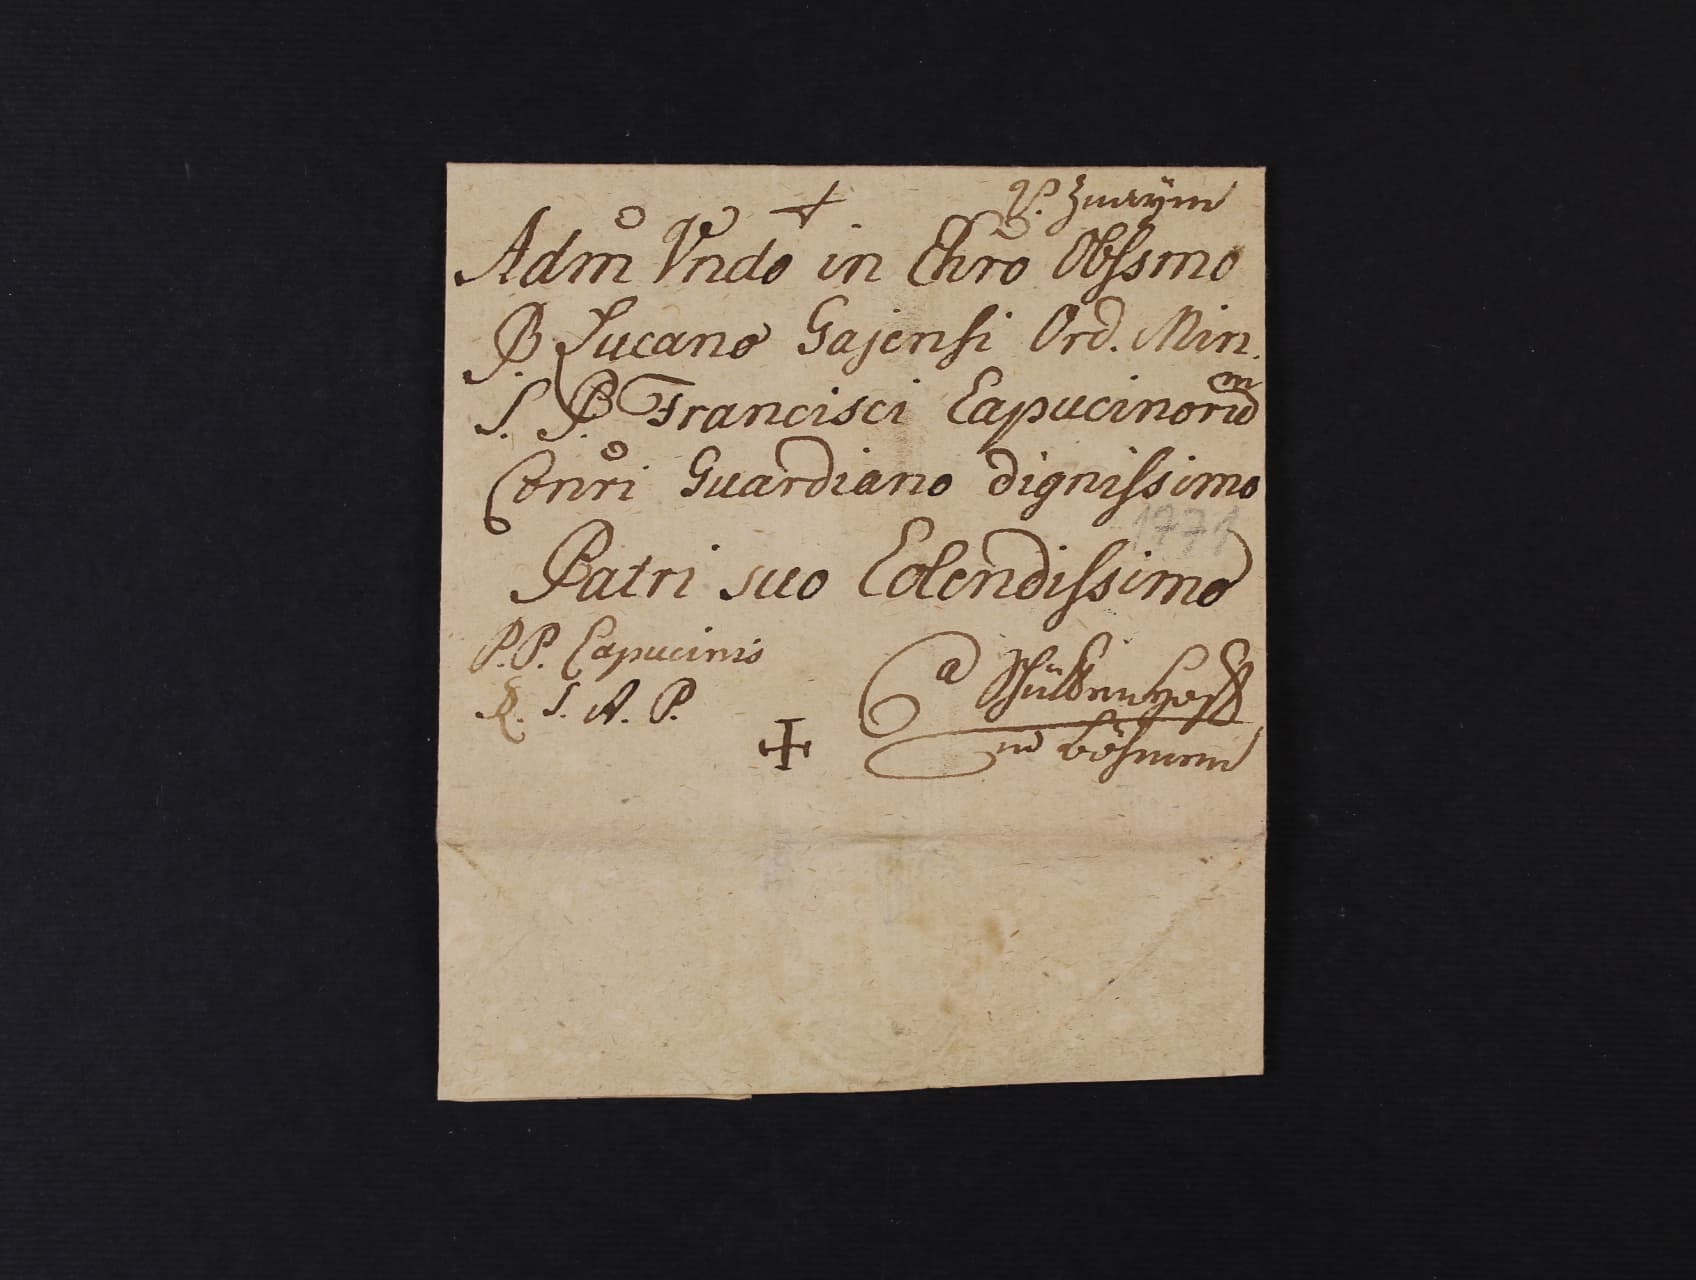 P. Znaÿm
Adm Vndo in Chro Obssmo
P. Lucano Gajensi Ord. Min.
S. P. Francisci Capucinorum
Conri Guardiano dignissimo
1771
Patri suo Colendissimo
P.P. Capucinis
S. A. P.
a Schüttenhoff
in Böhmen